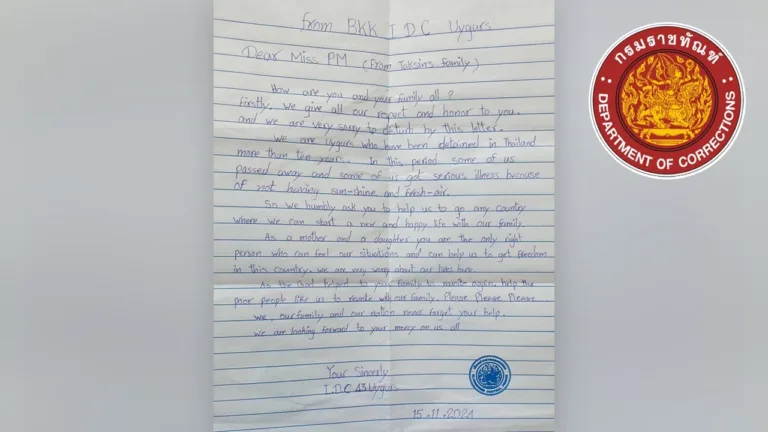 from BKK I D C Uygurs
Dear Miss PM (From Taksin's family)
How are you and your family all?
Firstly, we give all our repect and honor to you.
and we are very sorry to disturb by this letter.
We are Uygurs who have been detained in Thailand
more than ten years. In this period some of us
passed away and some of us got serious illness because
of not having sun-shine and fresh-air.
So we humbly ask you to help us to go any country
where we can start a new and happy life with our family.
As a mother and a daughter you are the only right
person who can feel our situations and can help us to get freedom
in this country. we are very worry about our lives here.
As the God helped to your family to reunite again. help the
poor people like us to reunite with our family. Please Please Please...
We, our family and our nation never forget your help.
We are looking forward to your mercy on us all
Your Sincerly
I.D.C 43 Uygurs
15.11.2024
กรมราชทัณฑ์
DEPARTMENT OF CORRECTIONS